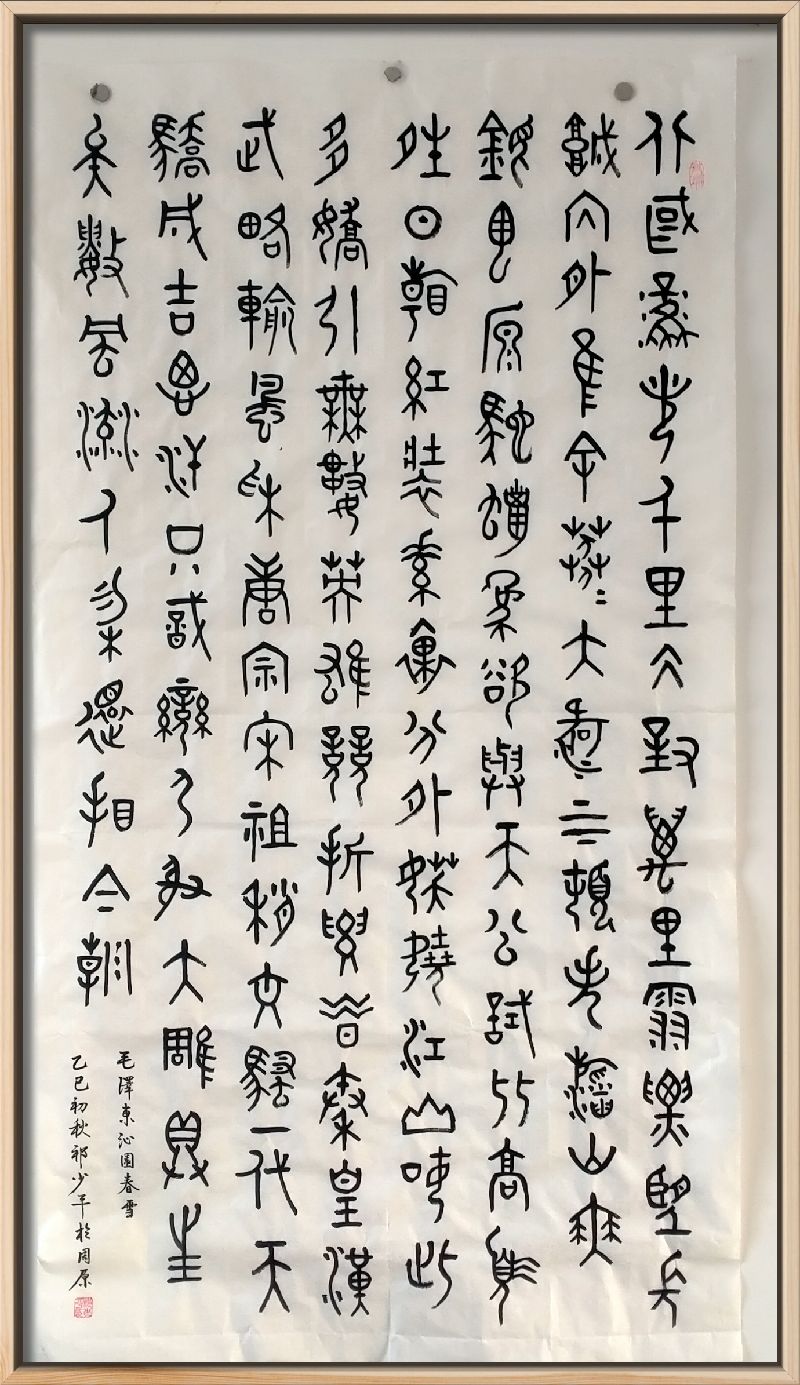 北國風光千里冰封萬里雪飄望長
城內外惟余莽莽大河上下頓失滔滔山舞
銀蛇原馳蠟象欲與天公試比高須
晴日看紅裝素裹分外妖嬈江山如此
多嬌引無數英雄競折腰昔秦皇漢
武略輸風采唐宗宋祖稍文騷一代天
驕成吉思汗只識彎弓射大雕俱往
矣數風流人物還看今朝
毛澤東沁園春雪
乙巳初秋祁少平於周原